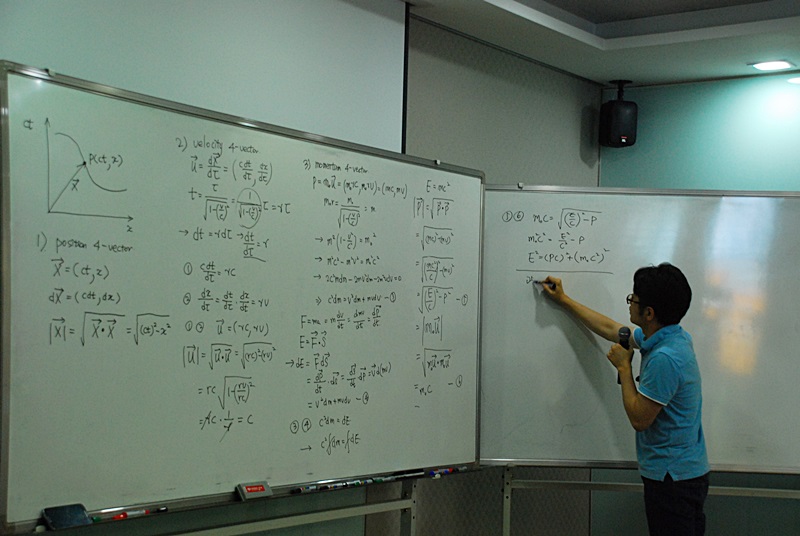 ct
P(ct, x)
X⃗
x
1) position 4-vector
X⃗ = (ct, x)
dX⃗ = (cdt, dx)
|X⃗| = √(X⃗·X⃗) = √((ct)²-x²)
2) velocity 4-vector
U⃗ = dX⃗/dτ = (cdt/dτ, dx/dτ)
t = τ/√(1-(v/c)²) = 1/√(1-(v/c)²) τ = rτ
→ dt = rdτ → dt/dτ = r
① cdt/dτ = rc
② dx/dτ = dt/dτ · dx/dt = rv
①② U⃗ = (rc, rv)
|U⃗| = √(U⃗·U⃗) = √((rc)²-(rv)²)
= rc √(1-(rv/rc)²)
= rc · 1/r = c
3) momentum 4-vector
P = m₀U⃗ = (m₀rc, m₀rv) = (mc, mv)
m₀r = m₀/√(1-(v/c)²) = m
→ m²(1-v²/c²) = m₀²
→ m²c² - m²v² = m₀²c²
→ 2c²mdm - 2mv²dm - 2m²vdv = 0
⇒ c²dm = v²dm + mvdv -③
F = ma = m dv/dt = dmv/dt = dP⃗/dt
E = F⃗·S⃗
→ dE = F⃗ dS⃗
= dP⃗/dt · dS⃗ = dS⃗/dt dP⃗ = v⃗ d(mv)
= v²dm + mvdv -④
③ ④ c²dm = dE
→ c²∫dm = ∫dE
E = mc²
|P⃗| = √(P⃗·P⃗)
= √((mc)²-(mv)²)
= √((mc²/c)²-(mv)²)
= √((E/c)²-P²) -⑤
= |m₀U⃗|
= √(m₀U⃗·m₀U⃗)
= m₀c -⑥
⑤ ⑥ m₀c = √((E/c)²-P
m₀²c² = E²/c² - P
E² = (PC)² + (m₀c²)²